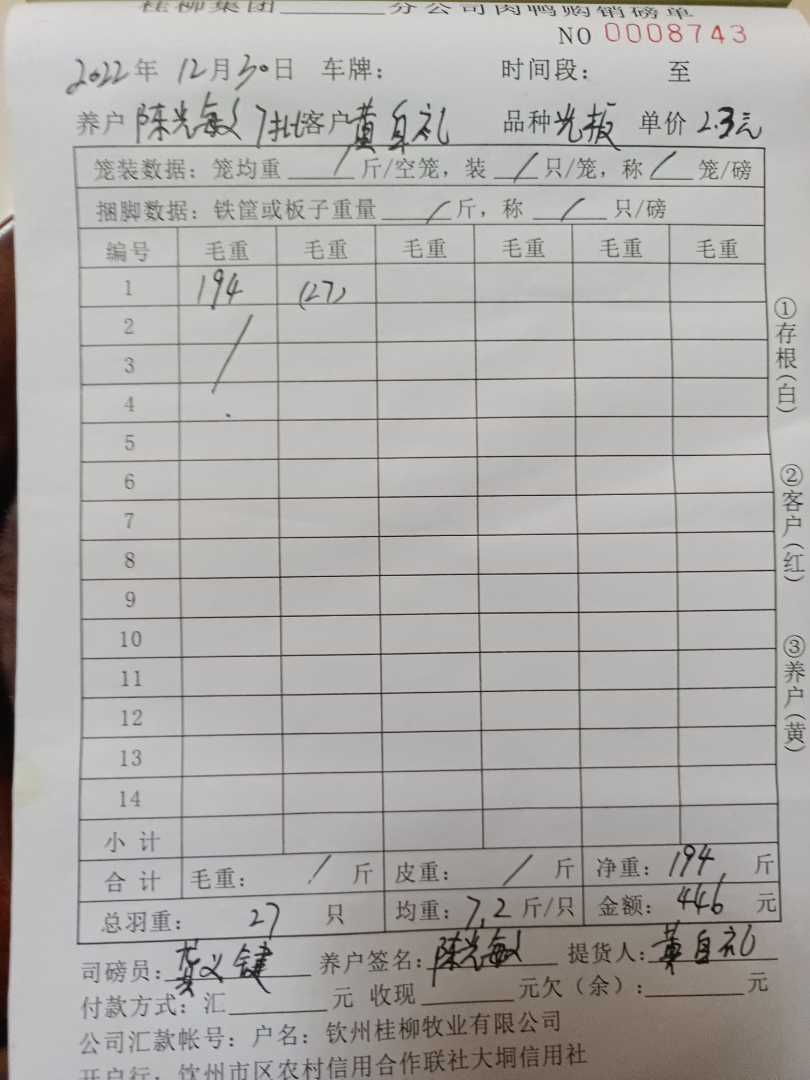 桂柳集团______分公司肉鸭购销磅单
NO 0008743
2022年 12月30日 车牌: 时间段: 至
养户 陈光敏 7批客户 黄自礼 品种 光板 单价 2.3元
笼装数据: 笼均重 / 斤/空笼, 装 / 只/笼, 称 / 笼/磅
捆脚数据: 铁筐或板子重量 / 斤, 称 / 只/磅
编号 毛重 毛重 毛重 毛重 毛重 毛重
1 194 (27)
2
3
4
5
6
7
8
9
10
11
12
13
14
小计
合计 毛重: / 斤 皮重: / 斤 净重: 194 斤
总羽重: 27 只 均重: 7.2 斤/只 金额: 446 元
司磅员: 黄义键 养户签名: 陈光敏 提货人: 黄自礼
付款方式: 汇______元 收现______元欠(余):______元
公司汇款帐号: 户名: 钦州桂柳牧业有限公司
开户行: 钦州市区农村信用合作联社大垌信用社
①存根(白)
②客户(红)
③养户(黄)